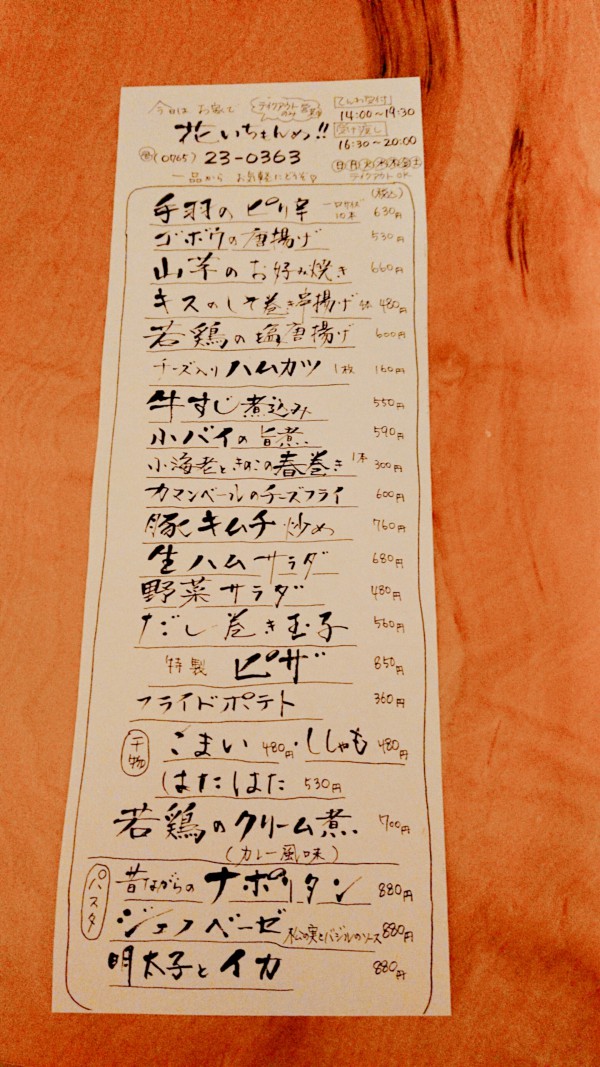 今日は お家で テイクアウトのみ 営業
花いちもんめ!!
でんわ受付 14:00〜19:30
受け渡し 16:30〜20:00
(0765) 23-0363
日月火水木金土
一品から お気軽にどうぞ♡ テイクアウトOK
(税込)
手羽のピリ辛 10本 630円
ゴボウの唐揚げ 530円
山芋のお好み焼き 660円
キスのしそ巻き串揚げ 480円
若鶏の塩唐揚げ 600円
チーズ入りハムカツ 1枚 160円
牛すじ煮込み 550円
小バイの旨煮 590円
小海老ときのこの春巻き 1本 300円
カマンベールのチーズフライ 600円
豚キムチ炒め 760円
生ハムサラダ 680円
野菜サラダ 480円
だし巻き玉子 560円
特製 ピザ 850円
フライドポテト 360円
干物 こまい 480円・ししゃも 480円
はたはた 530円
若鶏のクリーム煮 700円
(カレー風味)
パスタ 昔ながらのナポリタン 880円
ジェノベーゼ 松の実とバジルのソース 880円
明太子とイカ 880円